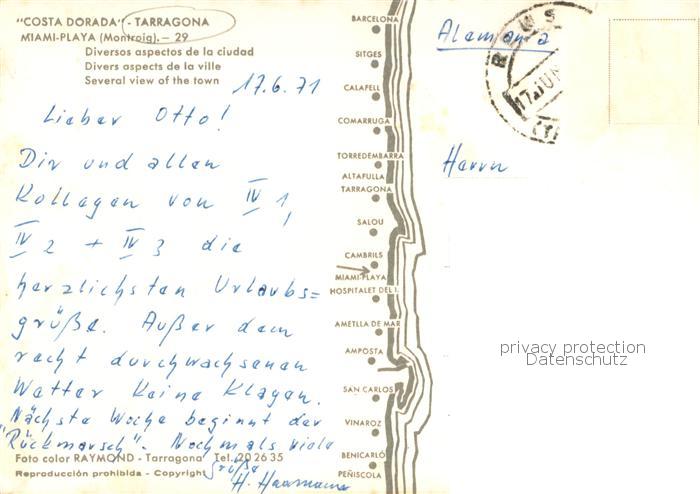 "COSTA DORADA" - TARRAGONA
MIAMI-PLAYA (Montroig). - 29
Diversos aspectos de la ciudad
Divers aspects de la ville
Several view of the town
17.6.71
Lieber Otto!
Dir und allen
Kollegen von IV 1,
IV 2 + IV 3 die
herzlichsten Urlaubs=
grüße. Außer dem
recht durchwachsenen
Wetter keine Klagen.
Nächste Woche beginnt der
"Rückmarsch". Nochmals viele
Grüße
H. Haarmann
Foto color RAYMOND - Tarragona Tel. 20 26 35
Reproducción prohibida - Copyright
BARCELONA
SITGES
CALAFELL
COMARRUGA
TORREDEMBARRA
ALTAFULLA
TARRAGONA
SALOU
CAMBRILS
MIAMI-PLAYA
HOSPITALET DEL I.
AMETLLA DE MAR
AMPOSTA
SAN CARLOS
VINAROZ
BENICARLÓ
PEÑISCOLA
Alemania
REUS
17 JUN
Herrn
privacy protection
Datenschutz